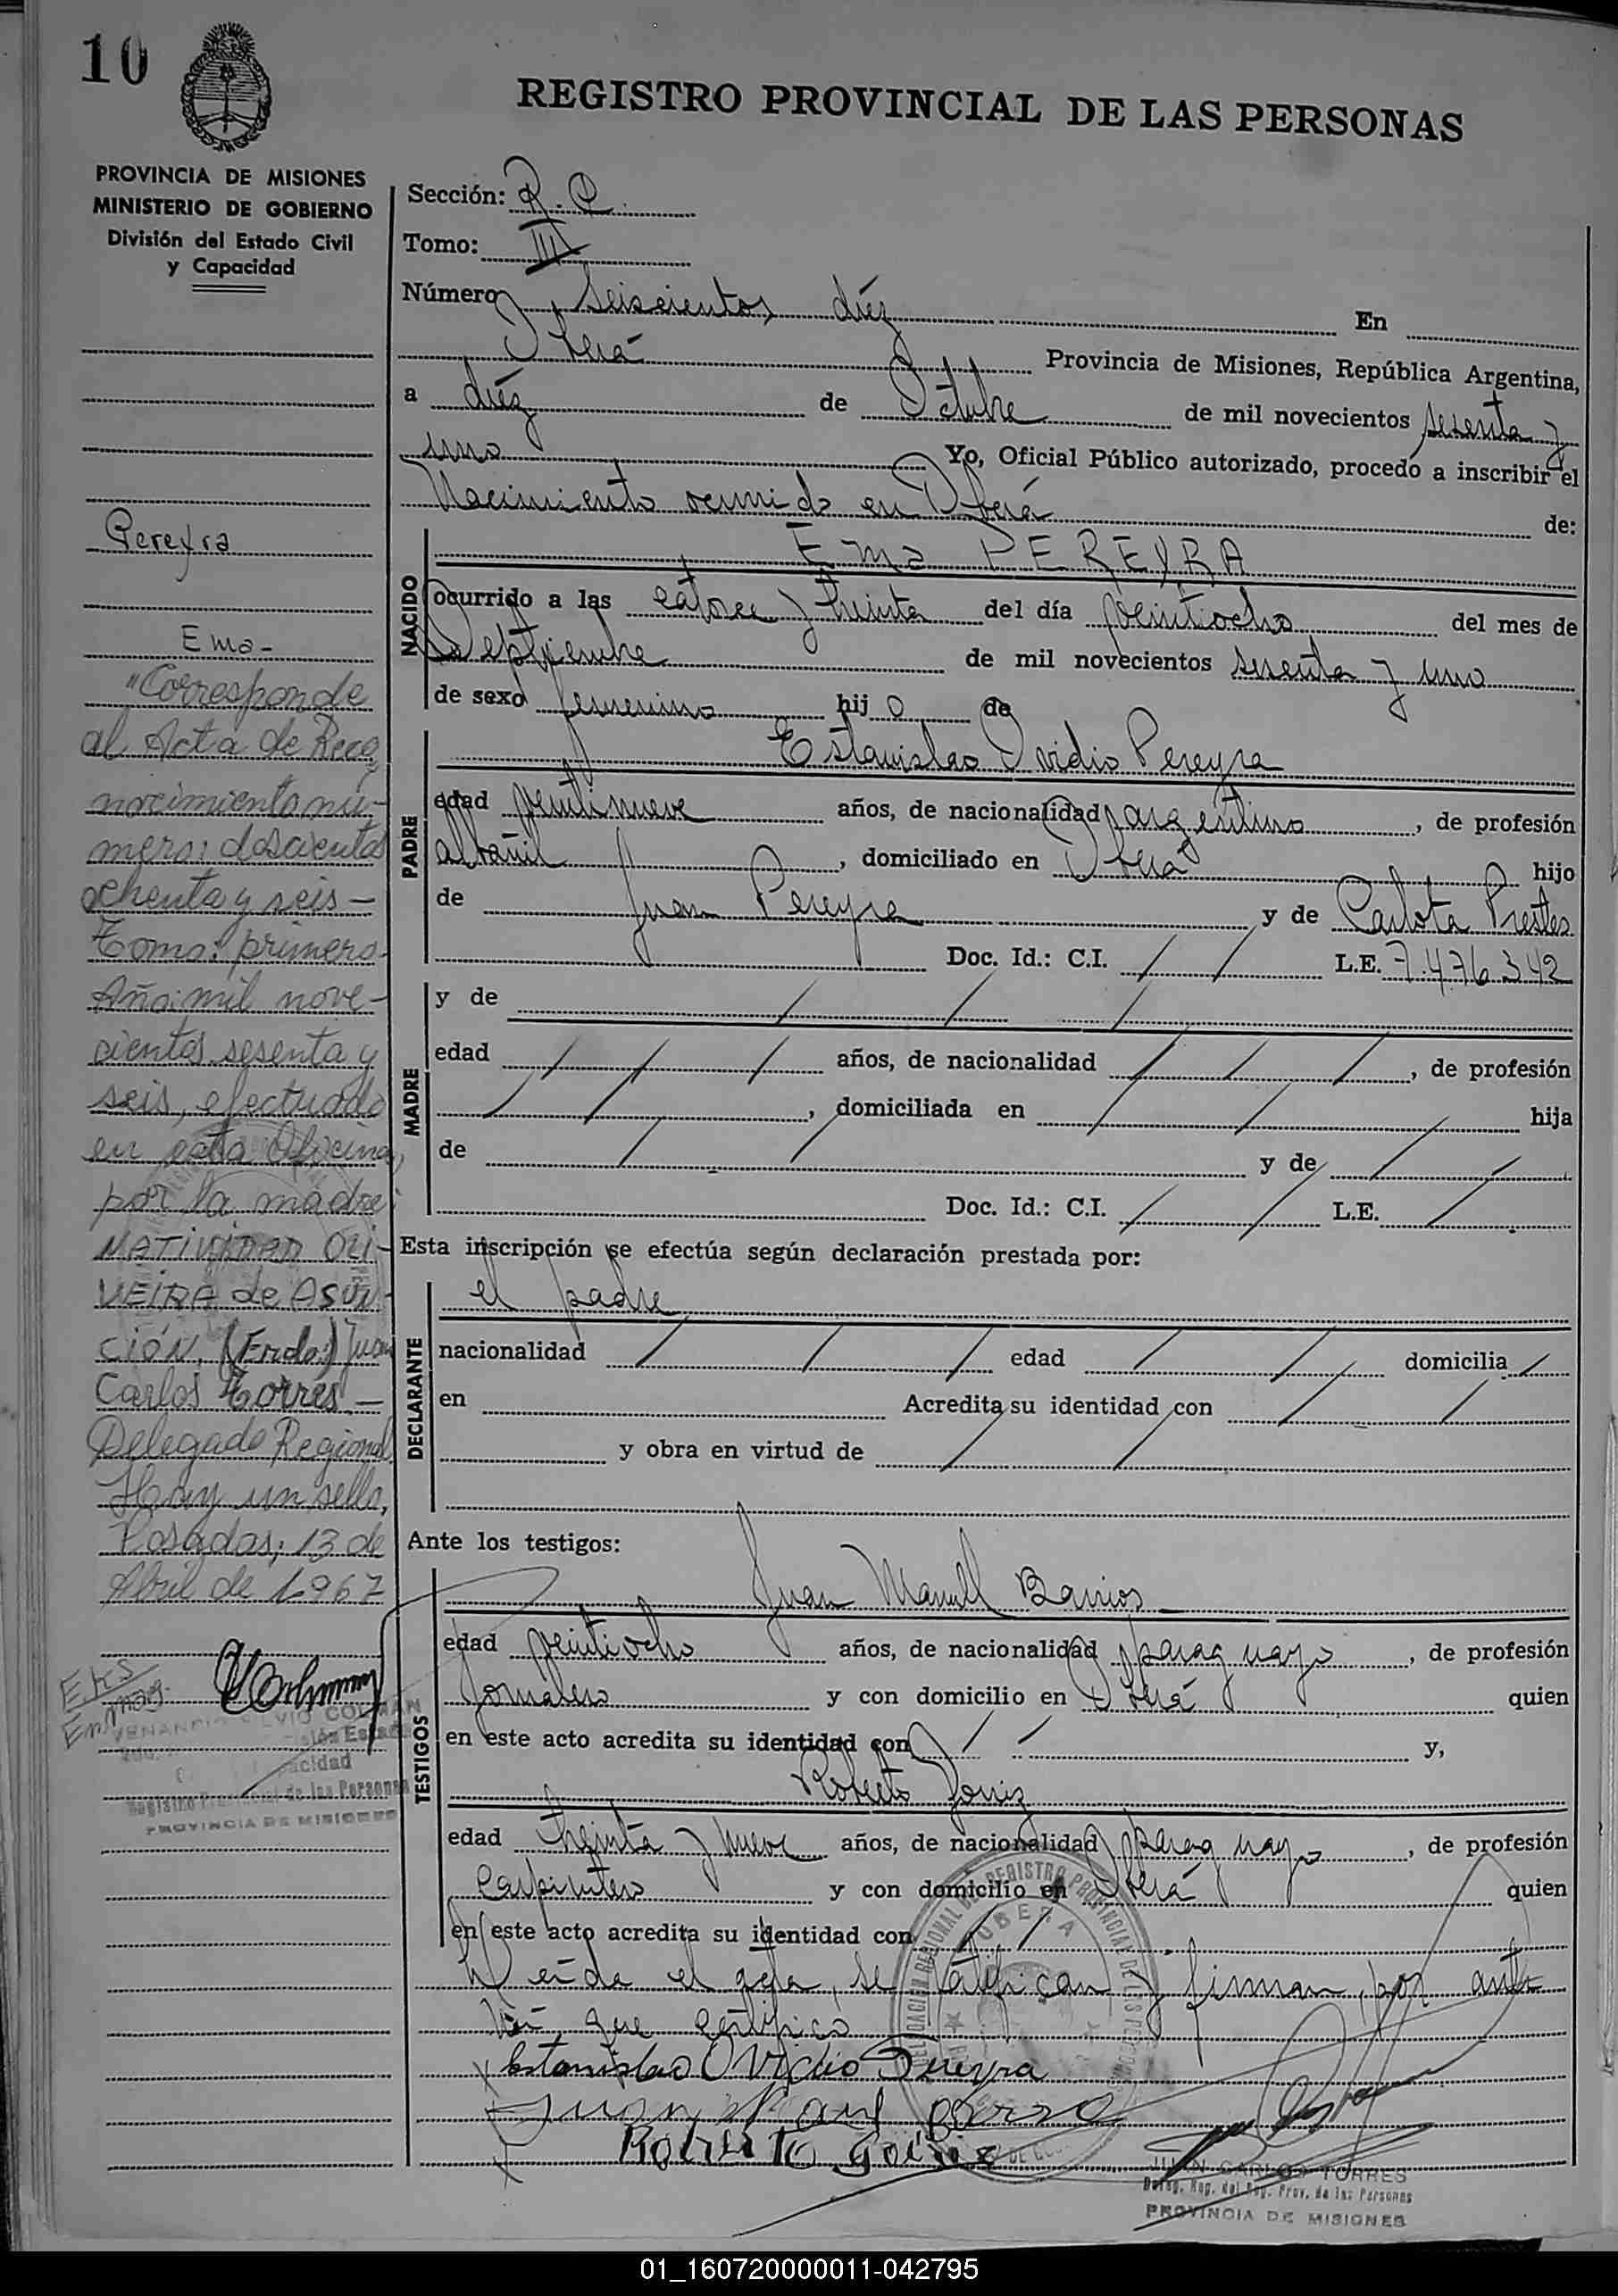 10
REGISTRO PROVINCIAL DE LAS PERSONAS
PROVINCIA DE MISIONES
MINISTERIO DE GOBIERNO
División del Estado Civil
y Capacidad
Sección: R.C.
Tomo: III
Número Seiscientos diéz En
Oberá Provincia de Misiones, República Argentina,
a diéz de Octubre de mil novecientos sesenta y
uno Yo, Oficial Público autorizado, procedo a inscribir el
Nacimiento ocurrido en Oberá de:
NACIDO
Ema PEREYRA
ocurrido a las catorce y treinta del día veintiocho del mes de
Septiembre de mil novecientos sesenta y uno
de sexo femenino hij o de
PADRE
Estanislao Ovidio Pereyra
edad veintinueve años, de nacionalidad argentino, de profesión
albañil, domiciliado en Oberá hijo
de Juan Pereyra y de Carlota Prestes
Doc. Id.: C.I. / / L.E. 7.476.342
MADRE
y de / / /
edad / / / años, de nacionalidad / / /, de profesión
/ /, domiciliada en / / / hija
de / / y de / /
Doc. Id.: C.I. / / L.E. /
Esta inscripción se efectúa según declaración prestada por:
DECLARANTE
el padre
nacionalidad / / / edad / / domicilia /
en Acredita su identidad con / /
y obra en virtud de / /
Ante los testigos:
TESTIGOS
Juan Manuel Barrios
edad veintiocho años, de nacionalidad paraguayo, de profesión
Jornalero y con domicilio en Oberá quien
en este acto acredita su identidad con / / y,
Roberto
edad treinta y nueve años, de nacionalidad paraguayo, de profesión
Carpintero y con domicilio en Oberá quien
en este acto acredita su identidad con / /
Leída el acta, se ratifican y firman, por ante
mí que certifico
Estanislao Ovidio Pereyra
Juan
Roberto
JUAN CARLOS TORRES
Deleg. Reg. del Reg. Prov. de las Personas
PROVINCIA DE MISIONES
Pereyra
Ema-
"Corresponde
al Acta de Reco
nocimiento nú-
mero: doscientos
ochenta y seis -
Tomo: primero-
Año: mil nove-
cientos sesenta y
seis, efectuado
en esta Oficina,
por la madre:
NATIVIDAD OLI-
VEIRA de ASUN-
CIÓN. (Frdo:) Juan
Carlos Torres -
Delegado Regional
Hay un sello,
Posadas, 13 de
Abril de 1967
COLMAN
Registro Provincial de las Personas
PROVINCIA DE MISIONES
DELEGACION REGIONAL DEL REGISTRO PROVINCIAL DE LAS PERSONAS
OBERA
01_160720000011-042795